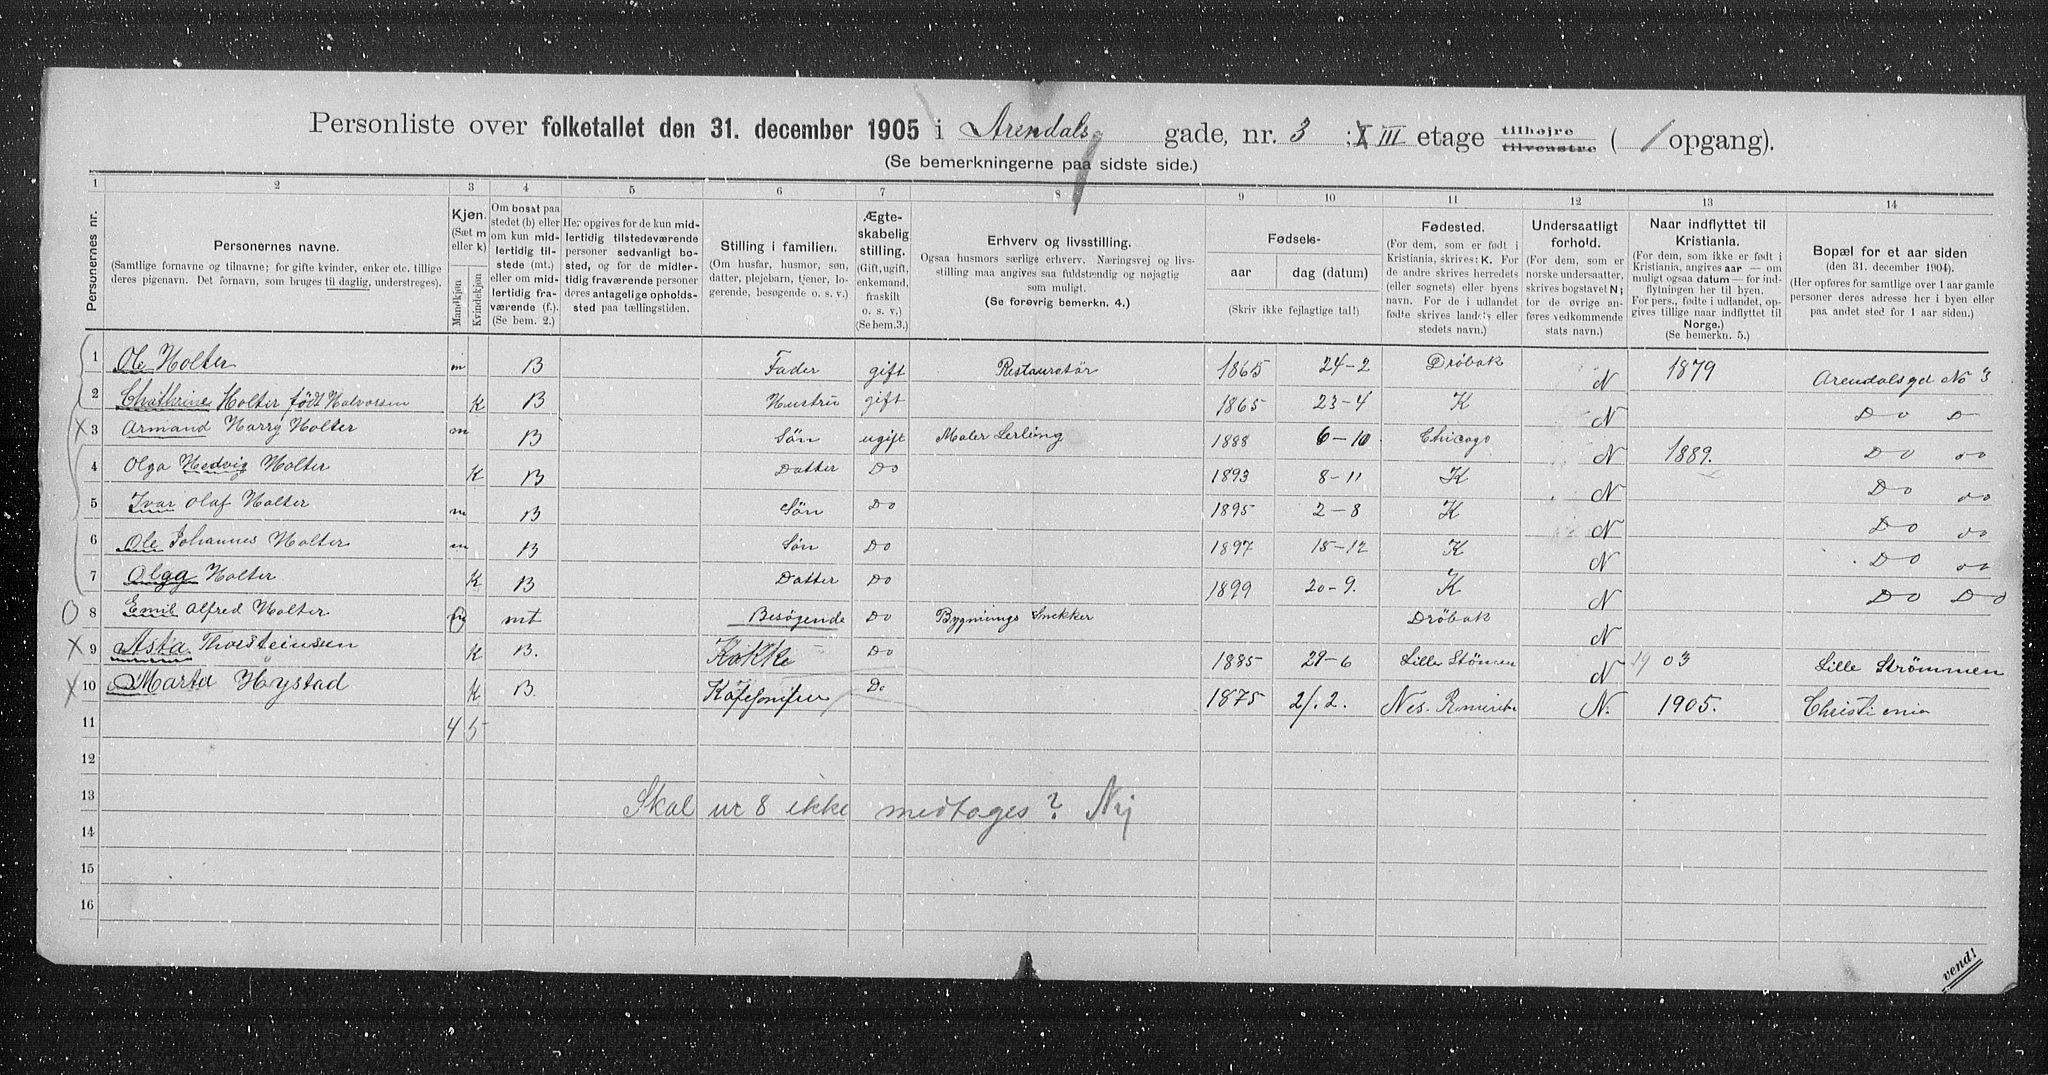 Personliste over folketallet den 31. december 1905 i Arendals gade, nr. 3 : III etage tilhøjre tilvenstre ( / opgang).
(Se bemerkningerne paa sidste side.)
1 2 3 4 5 6 7 8 9 10 11 12 13 14
Personernes nr.
Personernes navne.
(Samtlige fornavne og tilnavne; for gifte kvinder, enker etc. tillige
deres pigenavn. Det fornavn, som bruges til daglig, understreges).
Kjøn.
(Sæt m
eller k)
Mandkjøn
Kvindekjøn
Om bosat paa
stedet (b) eller
om kun mid-
lertidig til-
stede (mt.)
eller om mid-
lertidig fra-
værende (f.).
(Se bem. 2.)
Her opgives for de kun mid-
lertidig tilstedeværende
personer sedvanlig bo-
sted, og for de midler-
tidig fraværende personer
deres antagelige opholds-
sted paa tællingstiden.
Stilling i familien.
(Om husfar, husmor, søn,
datter, plejebarn, tjener, lo-
gerende, besøgende o. s. v.)
Ægte-
skabelig
stilling.
(Gift, ugift,
enkemand,
fraskilt
o. s. v.)
(Se bem. 3.)
Erhverv og livsstilling.
Ogsaa husmors særlige erhverv. Næringsvej og livs-
stilling maa angives saa fuldstændig og nøjagtig
som muligt.
(Se forøvrig bemerkn. 4.)
Fødsels-
aar dag (datum)
(Skriv ikke fejlagtige tal!)
Fødested.
(For dem, som er født i
Kristiania, skrives: K. For
de andre skrives herredets
(eller sognets) eller byens
navn. For de i udlandet
fødte skrives landets eller
stedets navn.)
Undersaatligt
forhold.
(For dem, som er
norske undersaatter,
skrives bogstavet N;
for de øvrige an-
føres vedkommende
stats navn.)
Naar indflyttet til
Kristiania.
(For dem, som ikke er født i
Kristiania, angives aar — om
muligt ogsaa datum — for ind-
flytningen her til byen.
For pers., fødte i udlandet, op-
gives tillige naar indflyttet til
Norge.)
(Se bemerkn. 5.)
Bopæl for et aar siden
(den 31. december 1904.)
(Her opføres for samtlige over 1 aar gamle
personer deres adresse her i byen eller
paa andet sted for 1 aar siden.)
1 Ole Holter m B Fader gift Restauratør 1865 24-2 Drøbak N 1879 Arendalsgd No 3
2 Chathrine Holter født Halvorsen K B Hustru gift 1865 23-4 K N Do D
X 3 Armand Harry Holter m B Søn ugift Maler Lerling 1888 6-10 Chicago N 1889. Do oo
4 Olga Hedvig Holter K B Datter Do 1893 8-11 K N Do oo
5 Ivar Olaf Holter m B Søn Do 1895 2-8 K N Do oo
6 Ole Johannes Holter m B Søn Do 1897 15-12 K N Do oo
7 Olga Holter K B Datter Do 1899 20-9. K N Do Do
O 8 Emil Alfred Holter m mt Besøgende Do Bygnings Snekker Drøbak N
X 9 Asta Thorsteinsen K B. Kokke Do 1885 29-6 Lille Stømen N 1903 Lille Strømmen
X 10 Marta Høystad K B. Do 1875 2/. 2. Nes. N. 1905. Christiania
11 4 5
12
13 Skal nr 8 ikke medtages? Nej
14
15
16
vend!